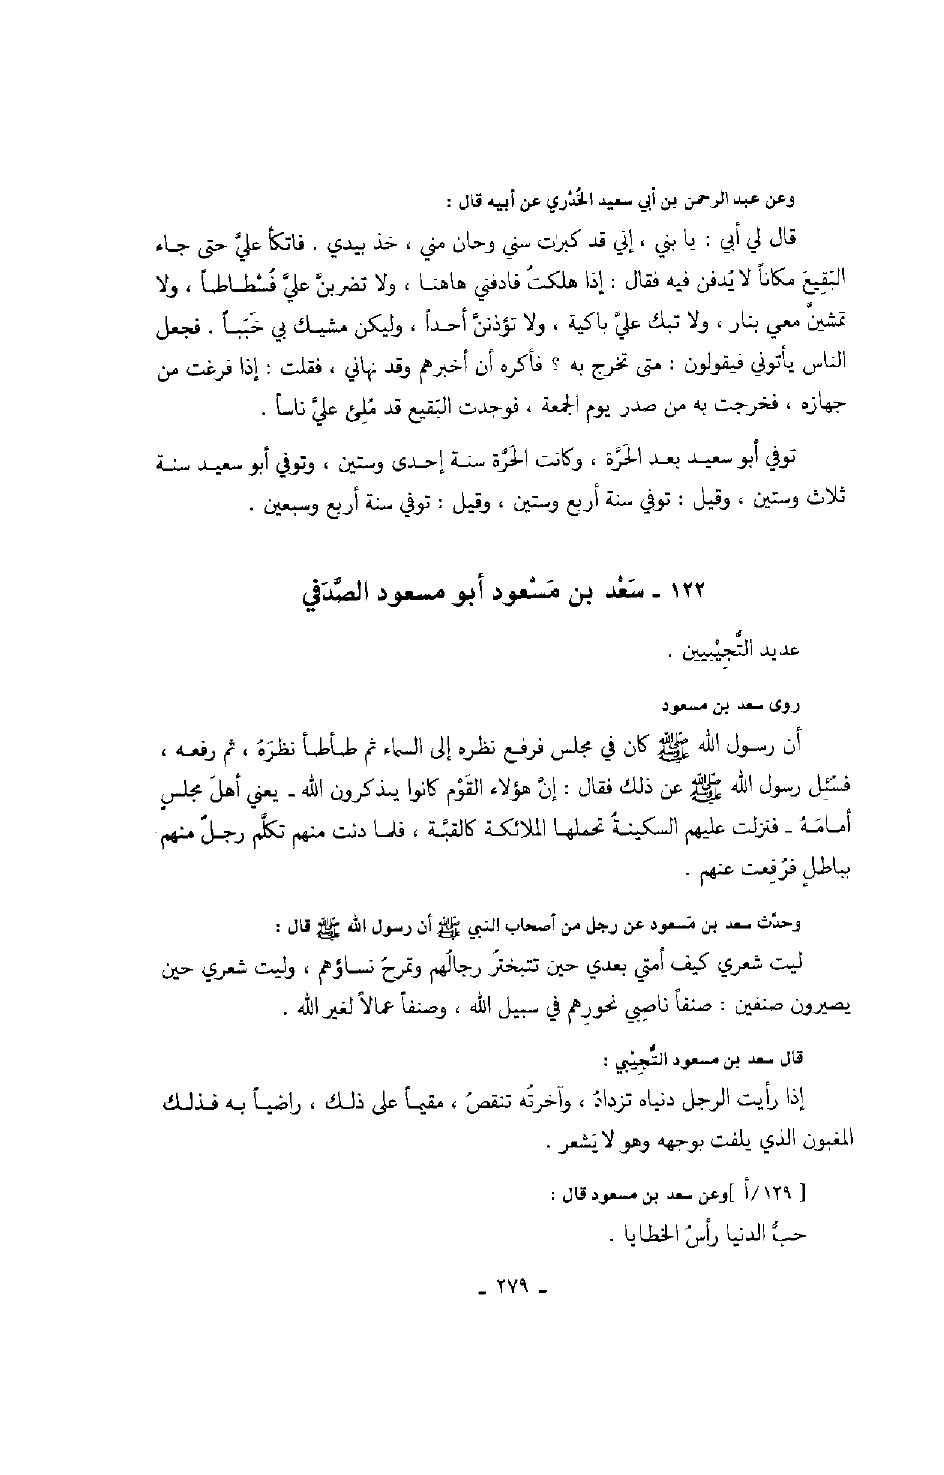 وعن عبد الرحمن بن أبي سعيد الخُدْري عن أبيه قال :
قال لي أبي : يا بني ، إني قد كبرت سني وحان مني ، خذ بيدي . فاتكأ عليَّ حتى جاء
البَقِيعَ مكاناً لا يُدفن فيه فقال : إذا هلكتُ فادفني هاهنا ، ولا تضربنَّ عليَّ فُسْطاطاً ، ولا
تمشينَّ معي بنار ، ولا تبك عليَّ باكية ، ولا تؤذننَّ أحداً ، وليكن مشيك بي خَبَباً . فجعل
الناس يأتوني فيقولون : متى تخرج به ؟ فأكره أن أخبرهم وقد نهاني ، فقلت : إذا فرغت من
جهازه ، فخرجت به من صدر يوم الجمعة ، فوجدت البَقيع قد مُلئ عليَّ ناساً .
توفي أبو سعيد بعد الحَرَّة ، وكانت الحَرَّة سنة إحدى وستين ، وتوفي أبو سعيد سنة
ثلاث وستين ، وقيل : توفي سنة أربع وستين ، وقيل : توفي سنة أربع وسبعين .
١٢٢ ـ سَعْد بن مَسْعود أبو مسعود الصَّدَفي
عديد التُّجِيْبِيين .
روى سعد بن مسعود
أن رسول الله ﷺ كان في مجلس فرفع نظره إلى السماء ثم طأطأ نظرَهُ ، ثم رفعه ،
فسُئِل رسول الله ﷺ عن ذلك فقال : إنَّ هؤلاء القَوْم كانوا يذكرون الله ـ يعني أهلَ مجلسٍ
أمامَهُ ـ فنزلت عليهم السكينةُ تحملها الملائكة كالقبَّة ، فلما دنت منهم تكلَّم رجلٌ منهم
بباطلٍ فرُفِعت عنهم .
وحدَّث سعد بن مَسعود عن رجل من أصحاب النبي ﷺ أن رسول الله ﷺ قال :
ليت شعري كيف أمتي بعدي حين تتبخترُ رجالُهم وتمرحُ نساؤهم ، وليت شعري حين
يصيرون صنفين : صنفاً ناصِبي نحورِهم في سبيل الله ، وصنفاً عمالاً لغير الله .
قال سعد بن مسعود التُّجِيْبي :
إذا رأيت الرجل دنياه تزدادُ ، وآخرتُه تنقصُ ، مقيماً على ذلك ، راضياً به فذلك
المغبون الذي يلفت بوجهه وهو لا يَشعر .
[ ١٢٩/أ ]وعن سعد بن مسعود قال :
حبُّ الدنيا رأسُ الخطايا .
ـ ٢٧٩ ـ